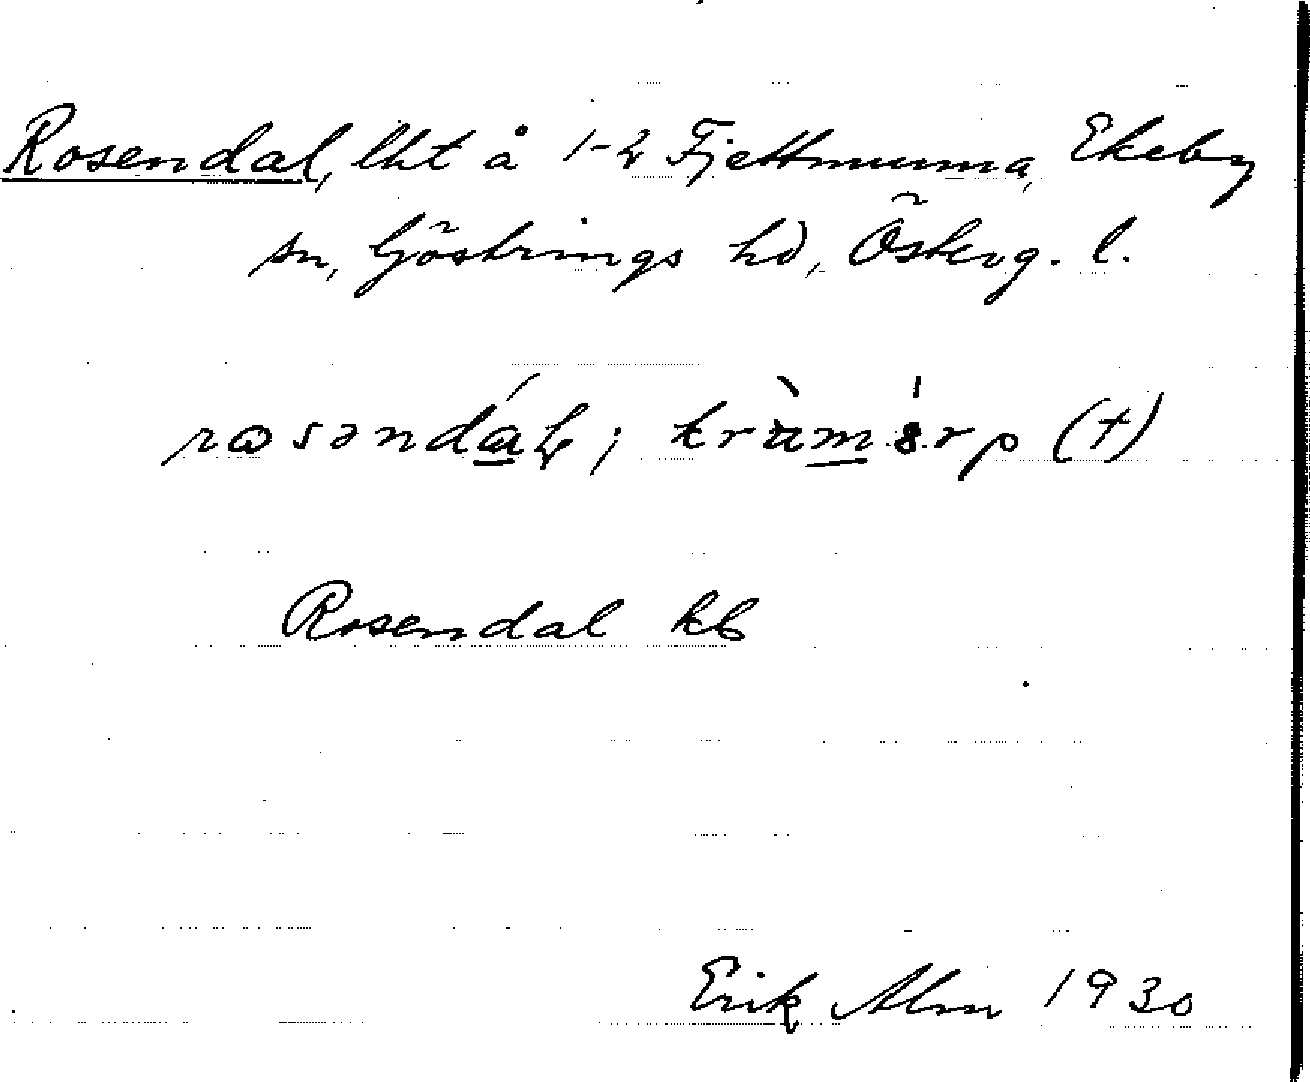 Rosendal, lht å 1-2 Fjettmunna, Ekeby
sn, Göstrings hd, Österg. l.
rosəndáɭ; kràmsrp (†)
Rosendal kb
Erik Alm 1930